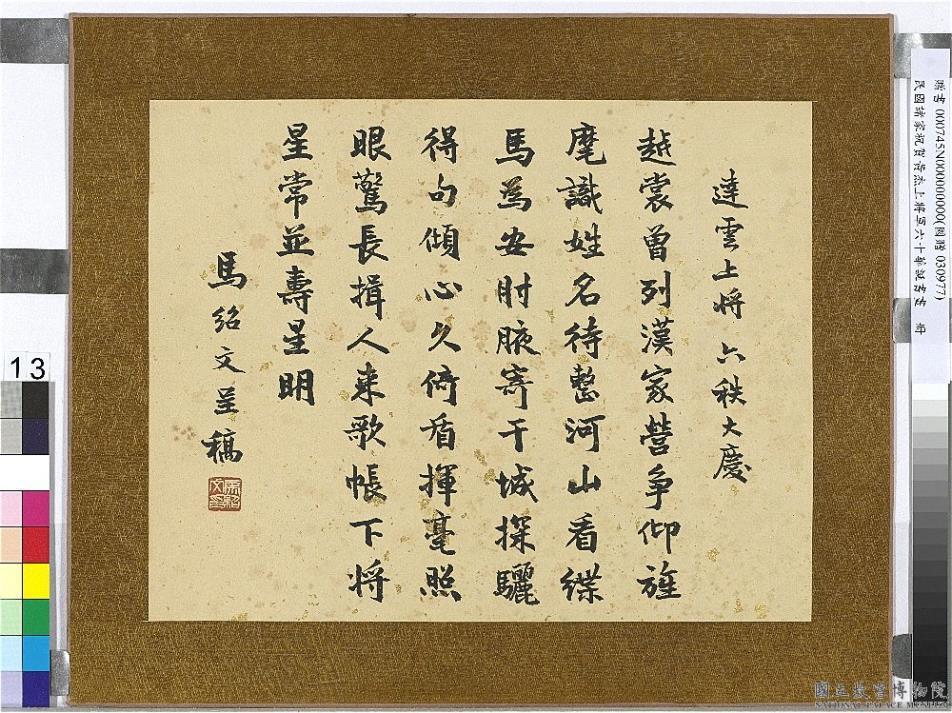 達雲上將 六秩大慶
越裳曾列漢家營爭仰旌
麾識姓名待整河山看緤
馬為安肘腋寄干城探驪
得句傾心久倚盾揮毫照
眼驚長揖人來歌帳下將
星常並壽星明
馬紹文呈稿
馬紹文印
贈書 000745N000000000(購贈 030977)
民國諸家祝賀黃杰上將軍六十華誕書畫 冊
13
國立故宮博物院
NATIONAL PALACE MUSEUM